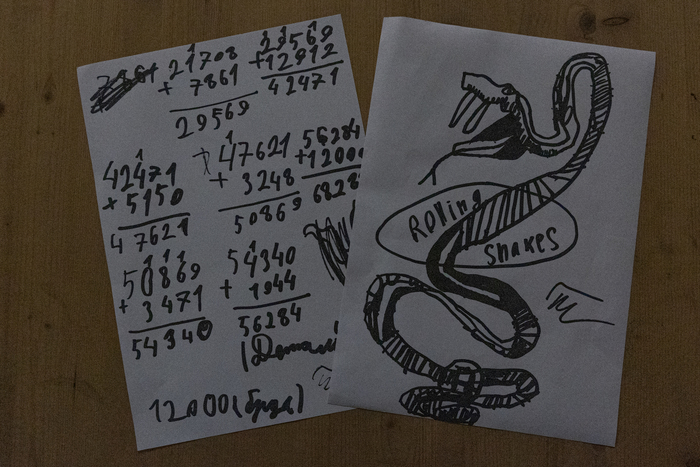 21708
+ 7861
29569
29569
+12912
42471
42471
+ 5150
47621
47621
+ 3248
50869
56284
+1200
6828
50869
+ 3471
54340
54340
+ 1944
56284
12000(бряд)
Rolling
Snakes